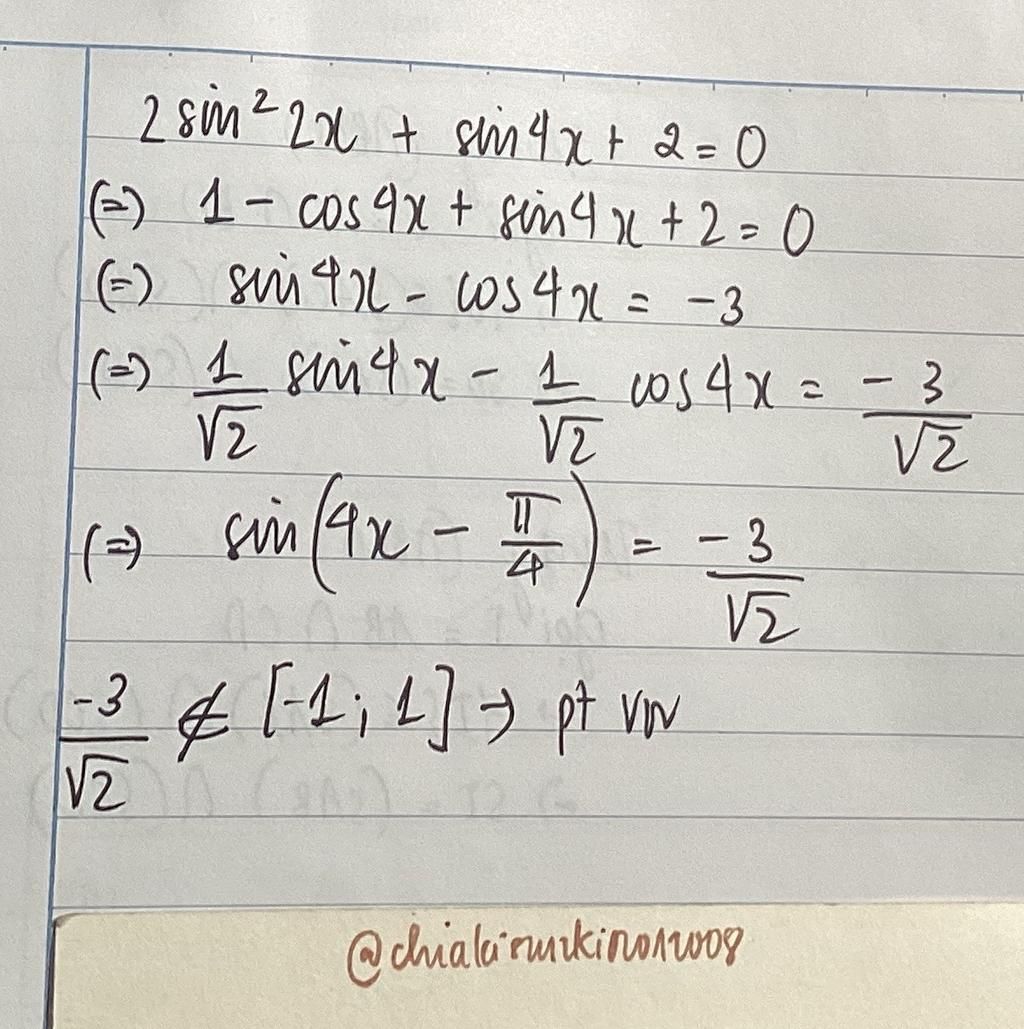 2 sin² 2x + sin 4x + 2 = 0
(=) 1 - cos 4x + sin 4x + 2 = 0
(=) sin 4x - cos 4x = -3
(=) 1/√2 sin 4x - 1/√2 cos 4x = -3/√2
(=) sin(4x - π/4) = -3/√2
-3/√2 ∉ [-1; 1] → pt vn